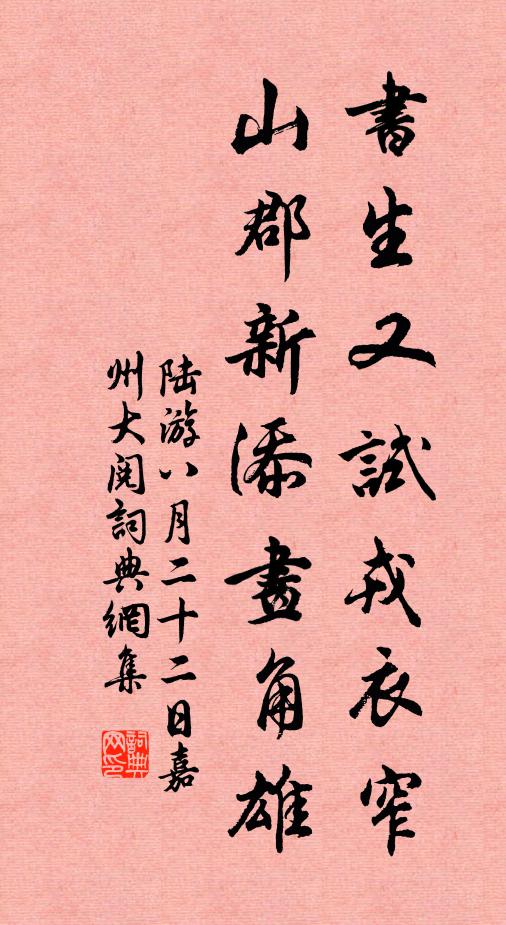 書生又試戎衣窄
山郡新添畫角雄
陆游八月二十二日嘉
州大阅詞典網集
詞典
网印